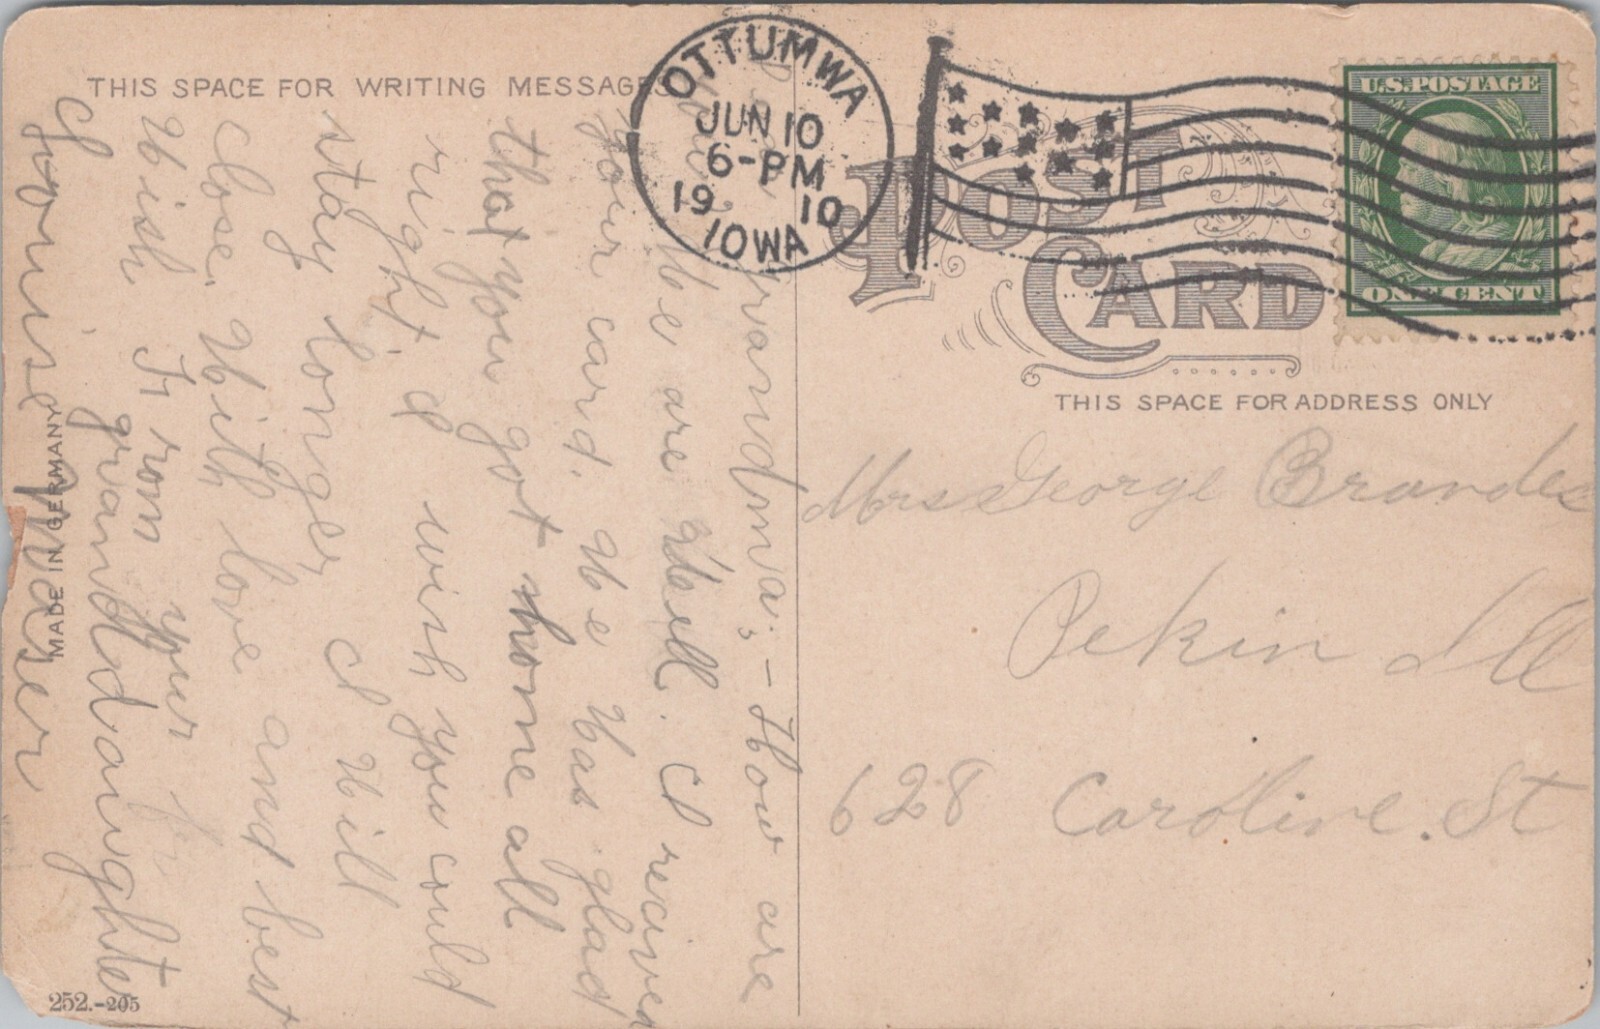 THIS SPACE FOR WRITING MESSAGES
OTTUMWA
JUN 10
6-PM
1910
IOWA
U.S. POSTAGE
ONE CENT
POST
CARD
THIS SPACE FOR ADDRESS ONLY
Mrs George Brandes
Pekin Ill
628 Caroline. St
Grandma; - How are
you We are well. I
your card. We was glad
that you got home all
right. I wish you could
stay longer I will
close. With love and best
Wish. From your
granddaughter
MADE IN GERMANY
252.-205